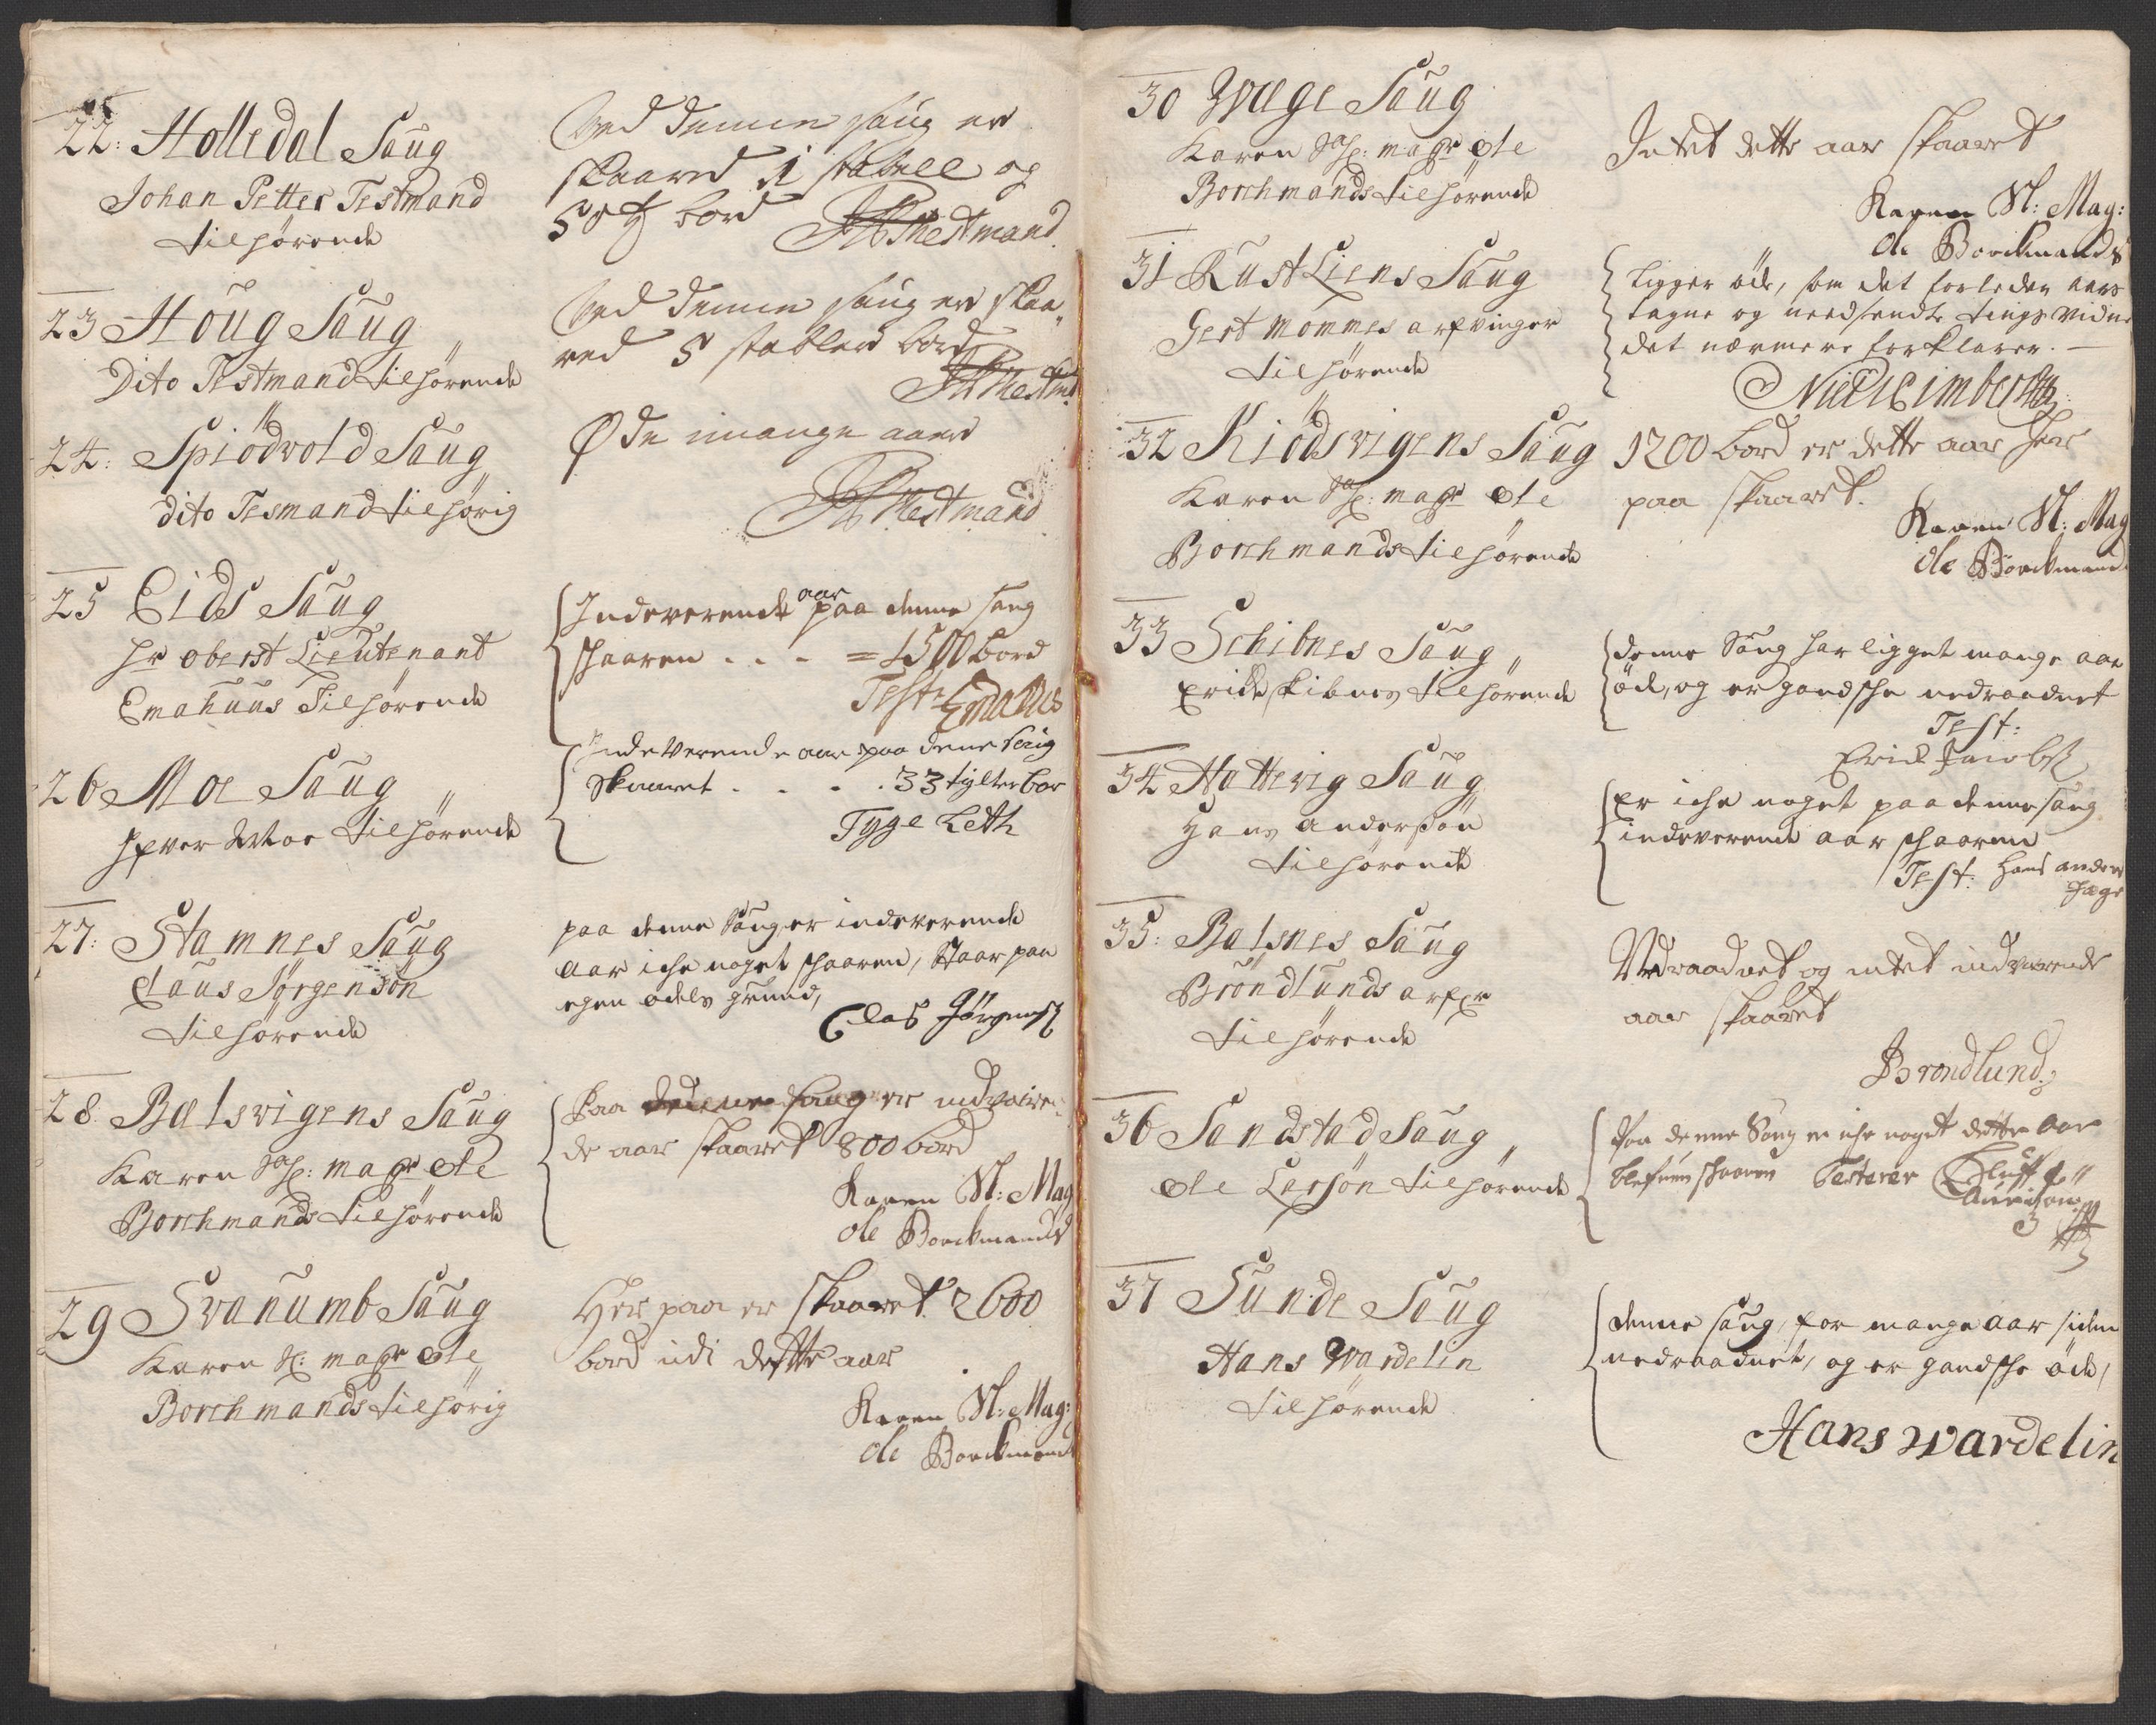 22: Holledal Saug
Johan Petter Testmand
tilhørende
Ved denne saug er
skaared i stabell og
50 bord JPTestmand
23 Houg Saug
Dito Testmand tilhørende
Ved denne saug er skaa,,
red 5 stabler bord
JPTestm:
24: Spiødvold Saug
dito Tesmand tilhørig
Øde mange aaer
JPTestmand
25 Eids Saug
hr oberst Lieutenant
Emahuus Tilhørende
Indeverende aar paa denne saug
schaaren . . . = 1500 bord
Test Emahus
26 Moe Saug
Ifver Moe tilhørende
Inde Verende aar paa dene saug
Skaaret . . . . 33 tylter bor
Tyge Leth
27: Stamnes Saug
Claus Jørgensøn
tilhørende
paa denne Saug er indeverende
aar iche noget schaaren, Staar paa
egen odels grund,
Clas Jørgens
28 Balsvigens Saug
Karen Sl: magr Ole
Borchmands tilhørende
Paa denne saug er indværen
de aar skaaret 800 bord
Karen Sl: Mag
Ole Borckmands
29 Svanumb Saug
Karen Sl: magr Ole
Borchmands tilhørig
Her paa er skaaret 2600
bord udi dette aar
Karen Sl: Mag:
Ole Borckmands
30 Wæge Saug
Karen Sl: magr Ole
Borchmands tilhørende
Intet dette aar skaaret
Karen Sl: Mag:
Ole Borckmands
31 Rust Liens Saug
Gert Mommes arfvinger
tilhørende
ligger øde, som det forleden aars
tagne og neersendte tings vidne
det nærmere forklarer. —
32 Kiødsvigens Saug
Karen Sl: magr Ole
Borchmands tilhørende
1200 bord er dette aar her
paa skaaret.
Karen Sl: Mag
Ole Borckmand
33 Schibnes Saug
Erick skibnes tilhørende
denne Saug har ligget mange aar
øde, og er gandsche nedraadnet
Test:
Erick Jacobs
34 Hattevig Saug
Hans anderssøn
tilhørende
Er iche noget paa denne saug
indeverende aar schaaren
Test: Hans anders
35: Balsnes Saug
Brøndlunds arfr
tilhørende
Nedraadnet og intet indværende
aar skaaret
Brondlund
36 Sandstad Saug
Ole Larsøn tilhørende
Paa denne Saug er iche noget dette aar
blefuen schaaren Testerer
37 Sunde Saug
Hans Wardelin
tilhørende
denne saug, for mange aar siden
nedraadnet, og er gandsche øde,
Hans Wardelin